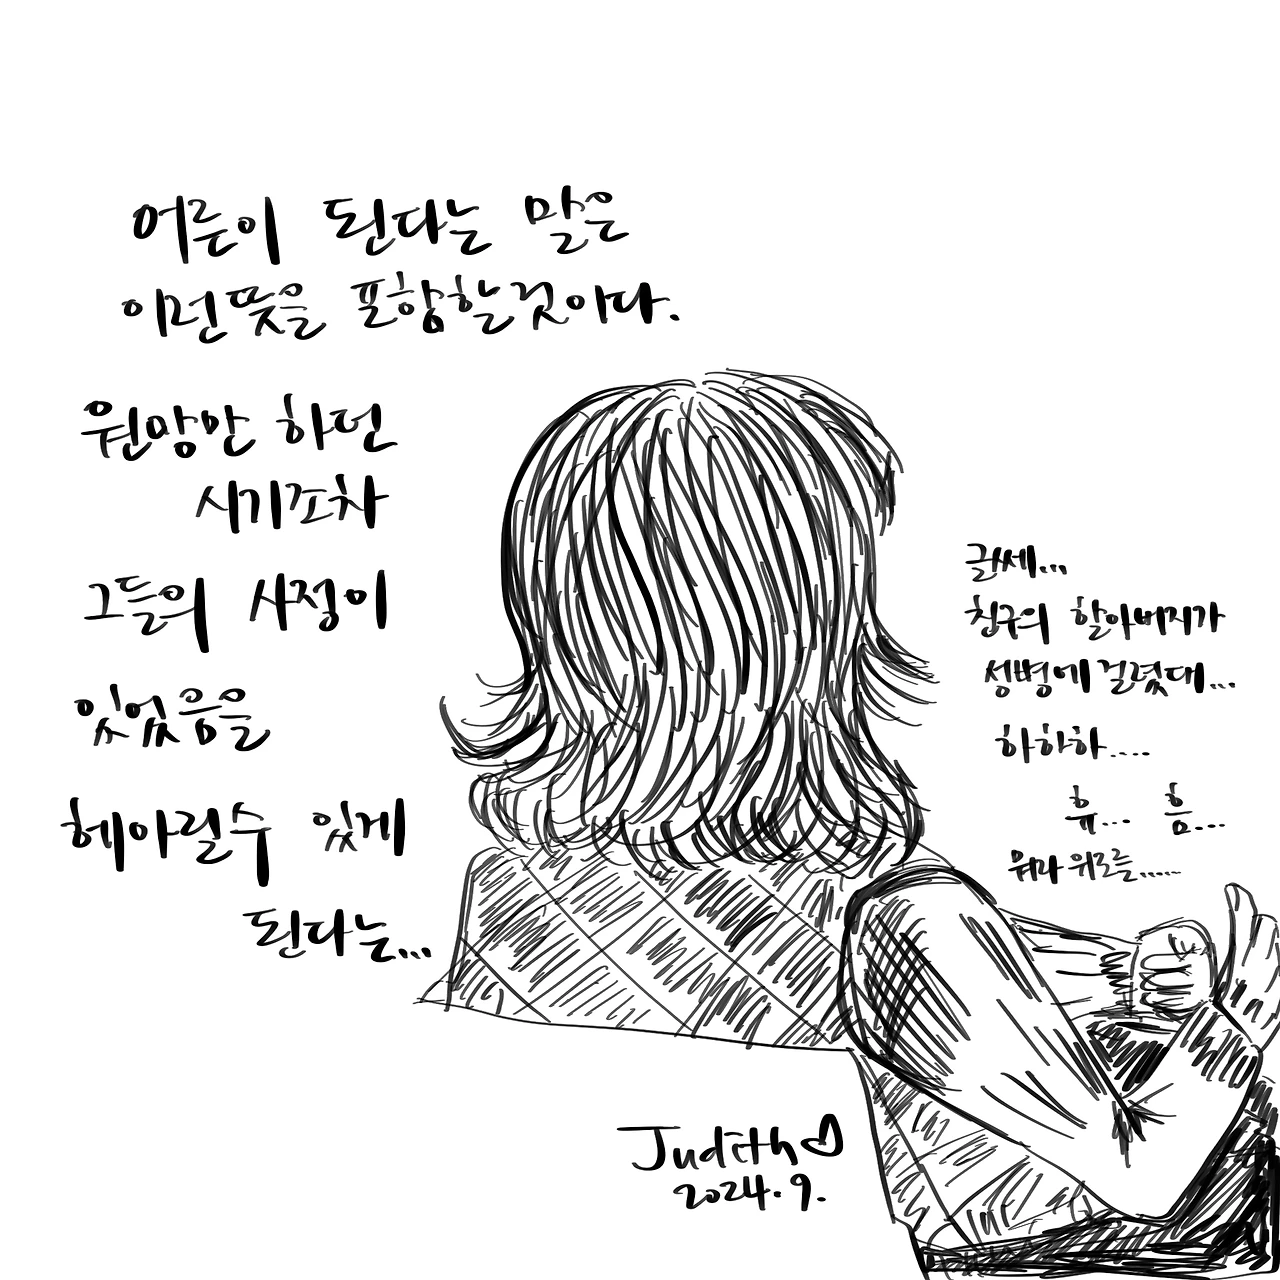 어른이 된다는 말은
이런뜻을 포함할것이다.
원망만 하던
시기조차
그들의 사정이
있었음을
헤아릴수 있게
된다는...
글쎄...
친구의 할아버지가
성병에 걸렸대...
하하하....
휴... 흠...
뭐라 위로를.....
Judith
2024.9.